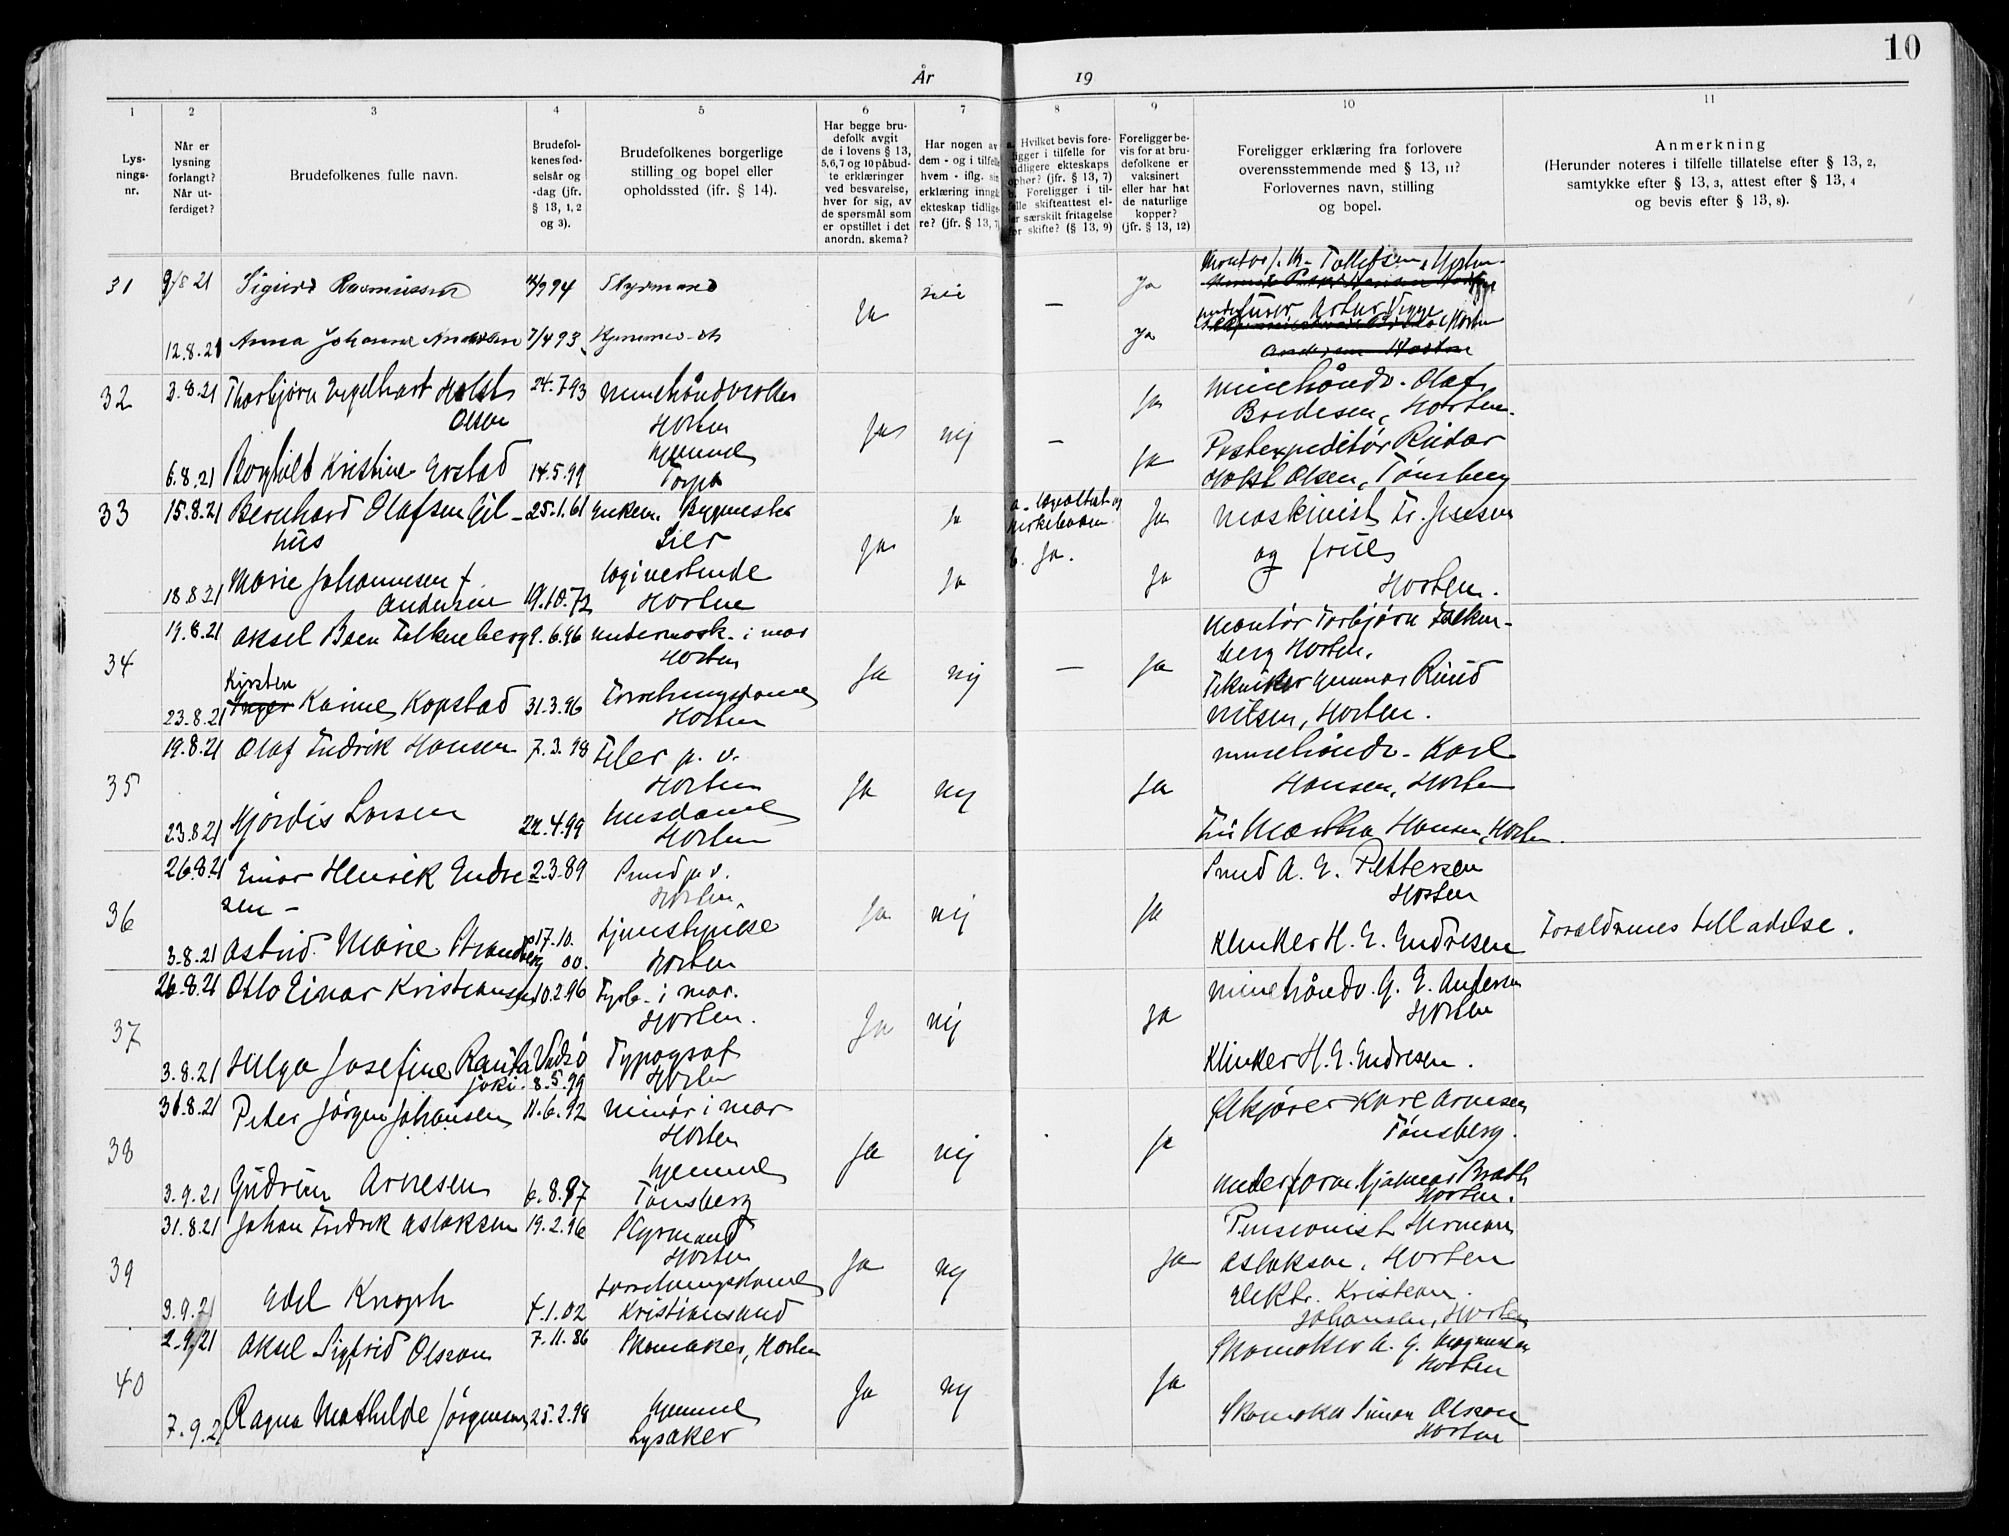 10
År 19
1 2 3 4 5 6 7 8 9 10 11
Lys-
nings-
nr.
Når er
lysning
forlangt?
Når ut-
ferdiget?
Brudefolkenes fulle navn.
Brudefol-
kenes fød-
selsår og
-dag (jfr.
§ 13, 1, 2
og 3).
Brudefolkenes borgerlige
stilling og bopel eller
opholdssted (jfr. § 14).
Har begge bru-
defolk avgit
de i lovens § 13,
5, 6, 7 og 10 påbud-
te erklæringer
ved besvarelse,
hver for sig, av
de spørsmål som
er opstillet i det
anordn. skema?
Har nogen av
dem - og i tilfelle
hvem - iflg. sin
erklæring inngå
ekteskap tidlige-
re? (jfr. § 13, 7)
a. Hvilket bevis fore-
ligger i tilfelle for
tidligere ekteskaps
ophør? (jfr. § 13, 7)
b. Foreligger i til-
felle skifteattest el-
ler særskilt fritagelse
for skifte? (§ 13, 9)
Foreligger be-
vis for at bru-
defolkene er
vaksinert
eller har hat
de naturlige
kopper?
(jfr. § 13, 12)
Foreligger erklæring fra forlovere
overensstemmende med § 13, 11?
Forlovernes navn, stilling
og bopel.
Anmerkning
(Herunder noteres i tilfelle tillatelse efter § 13, 2,
samtykke efter § 13, 3, attest efter § 13, 4
og bevis efter § 13, 8).
31 9/8 21 Sigurd Rasmussen 94 Styrmand Ja nei — Ja Tollefsen, Horten
Artur Vegge
Horten
12.8.21 Anna Johanne Andersen 7/4 93 Ja
32 3.8.21 Thorbjørn Engelhart Holst 24.7.93 Minehåndverker Ja Minehåndv. Olaf
Olsen Horten Bredesen, Horten.
Ja nej —
hjemme Ja Postexpeditör Reidar
6.8.21 Borghild Kristine Erstad 14.5.99 Torpo Holst Olsen, Tönsberg
33 15.8.21 Bernhard Olafsen Gil- 25.1.61 Enkem. Bygmester Ja a. Ja Maskinist Fr. Jensen
hus Lier Ja b. Ja. og frue
Marie Johannesen f. Logivertinde Ja Ja
18.8.21 Andersen 19.10.72 Horten Horten.
34 19.8.21 Aksel Boen Falkenberg 9.6.96 Undermask. i mar Montör Torbjörn Falken-
Horten berg Horten.
Kirsten Ja nej — Ja
23.8.21 Inger Karine Kopstad 31.3.96 Forretningsdame Tekniker Gunnar Ruud
Horten Nilsen, Horten.
35 19.8.21 Olaf Fredrik Hansen 7.3.98 Filer p. v. Minehåndv. Karl
Horten Ja nej Ja Hansen, Horten
23.8.21 Hjördis Larsen 22.4.99 Husdame
Horten Fru Martha Hansen, Horten.
36 26.8.21 Einar Henrik Endre 2.3.89 Smed p v. Smed A. E. Pettersen
sen - Horten. Horten
Ja nej Ja
3.8.21 Astrid Marie Strandberg 17.10. tjenestepike Klinker H. E. Endresen Forældrenes tilladelse.
00. Horten
37 26.8.21 Otto Einar Kristiansen 10.2.96 Fyrb. i mar. Minehåndv. G. E. Andersen
Horten. Horten
Ja nej Ja
3.8.21 Helga Josefine Ranta Vadsö Typograf Klinker H. E. Endresen.
joki. 8.5.99 Horten
38 31.8.21 Peter Jörgen Johansen 11.6.92 Minör i mar Ölkjörer Kare Arnesen
Horten Tönsberg.
Ja nej Ja
3.9.21 Gudrun Arnesen 6.8.97 hjemme Hjalmar Bratli
Tönsberg Horten.
39 31.8.21 Johan Fredrik Aslaksen 19.2.96 Styrmand Pensionist Herman
Horten Aslaksen, Horten
Ja nej Ja
3.9.21 Edel Knoph 7.1.02 Forretningsdame Elektr. Kristian
Kristiansand Johansen, Horten
40 2.9.21 Aksel Sigfrid Olsson 7.11.86 Skomaker, Horten Skomaker A. G. Magnussen
Horten
Ja nej Ja
7.9.21 Ragna Mathilde Jörgensen 25.2.98 hjemme Skomaker Simon Olsson
Lysaker Horten